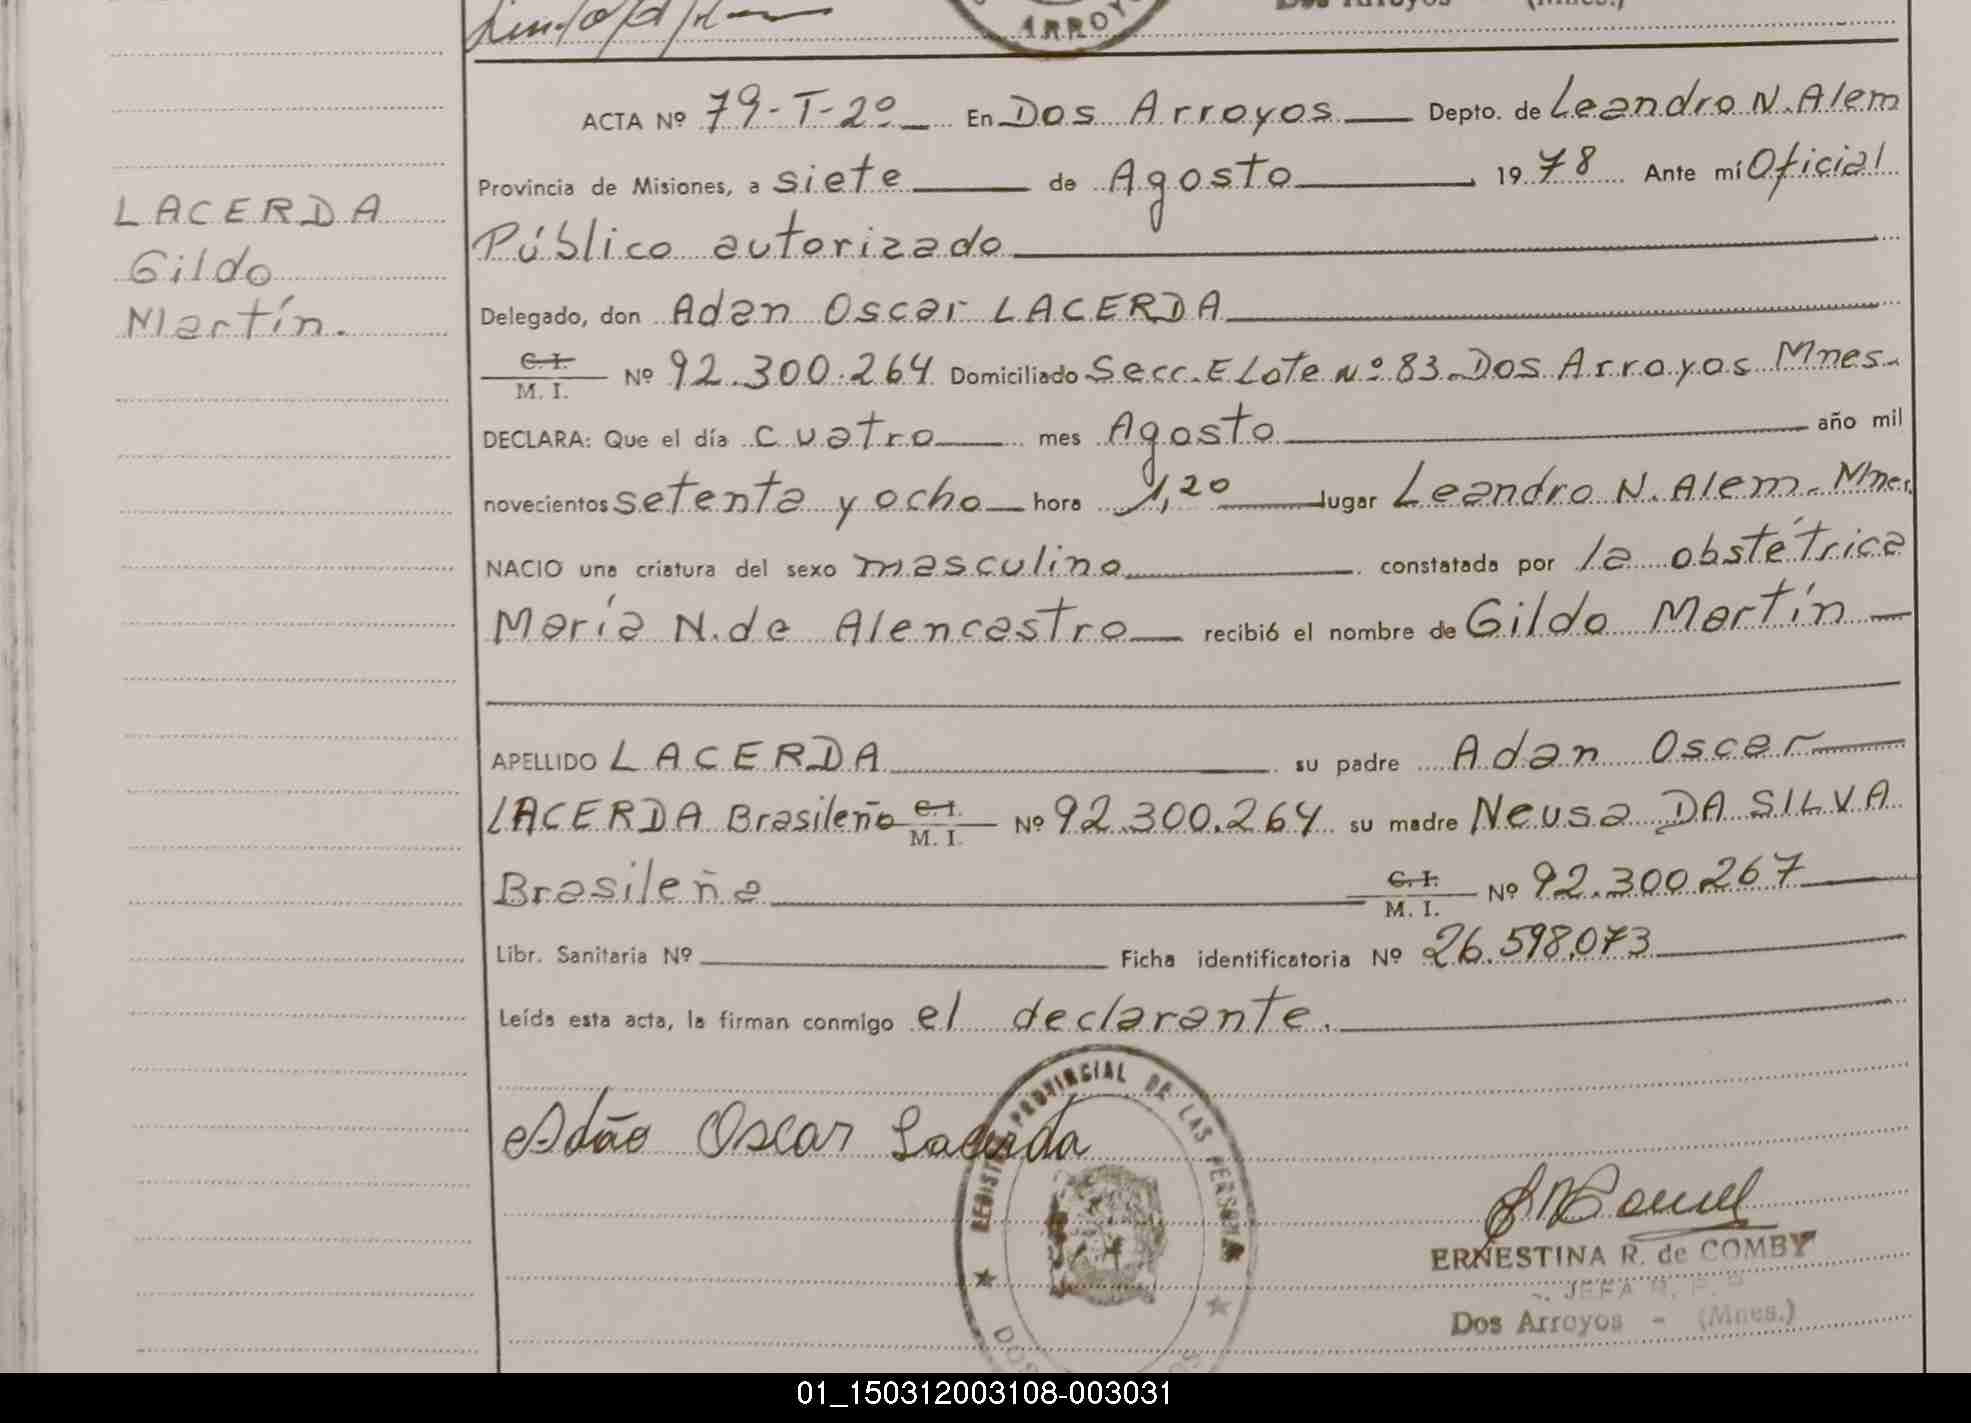 ARROYO
Dos Arroyos - (Mnes.)
ACTA Nº 79-T-2º En Dos Arroyos Depto. de Leandro N. Alem
Provincia de Misiones, a siete de Agosto 1978 Ante mí Oficial
Público autorizado
LACERDA
Gildo
Martín.
Delegado, don Adan Oscar LACERDA
C. I.
M. I. Nº 92.300.264 Domiciliado Secc. E Lote Nº 83. Dos Arroyos Mnes.
DECLARA: Que el día cuatro mes Agosto año mil
novecientos setenta y ocho hora 1,20 lugar Leandro N. Alem. Mnes.
NACIO una criatura del sexo masculino constatada por la obstétrica
María N. de Alencastro recibió el nombre de Gildo Martín
APELLIDO LACERDA su padre Adan Oscar
LACERDA Brasileño C. I. M. I. Nº 92.300.264 su madre Neusa DA SILVA
Brasileña C. I. M. I. Nº 92.300.267
Libr. Sanitaria Nº Ficha identificatoria Nº 26.598.073
Leída esta acta, la firman conmigo el declarante.
Adão Oscar Lacerda
REGISTRO PROVINCIAL DE LAS PERSONAS
ERNESTINA R. de COMBY
JEFA R. P.
Dos Arroyos - (Mnes.)
01_150312003108-003031